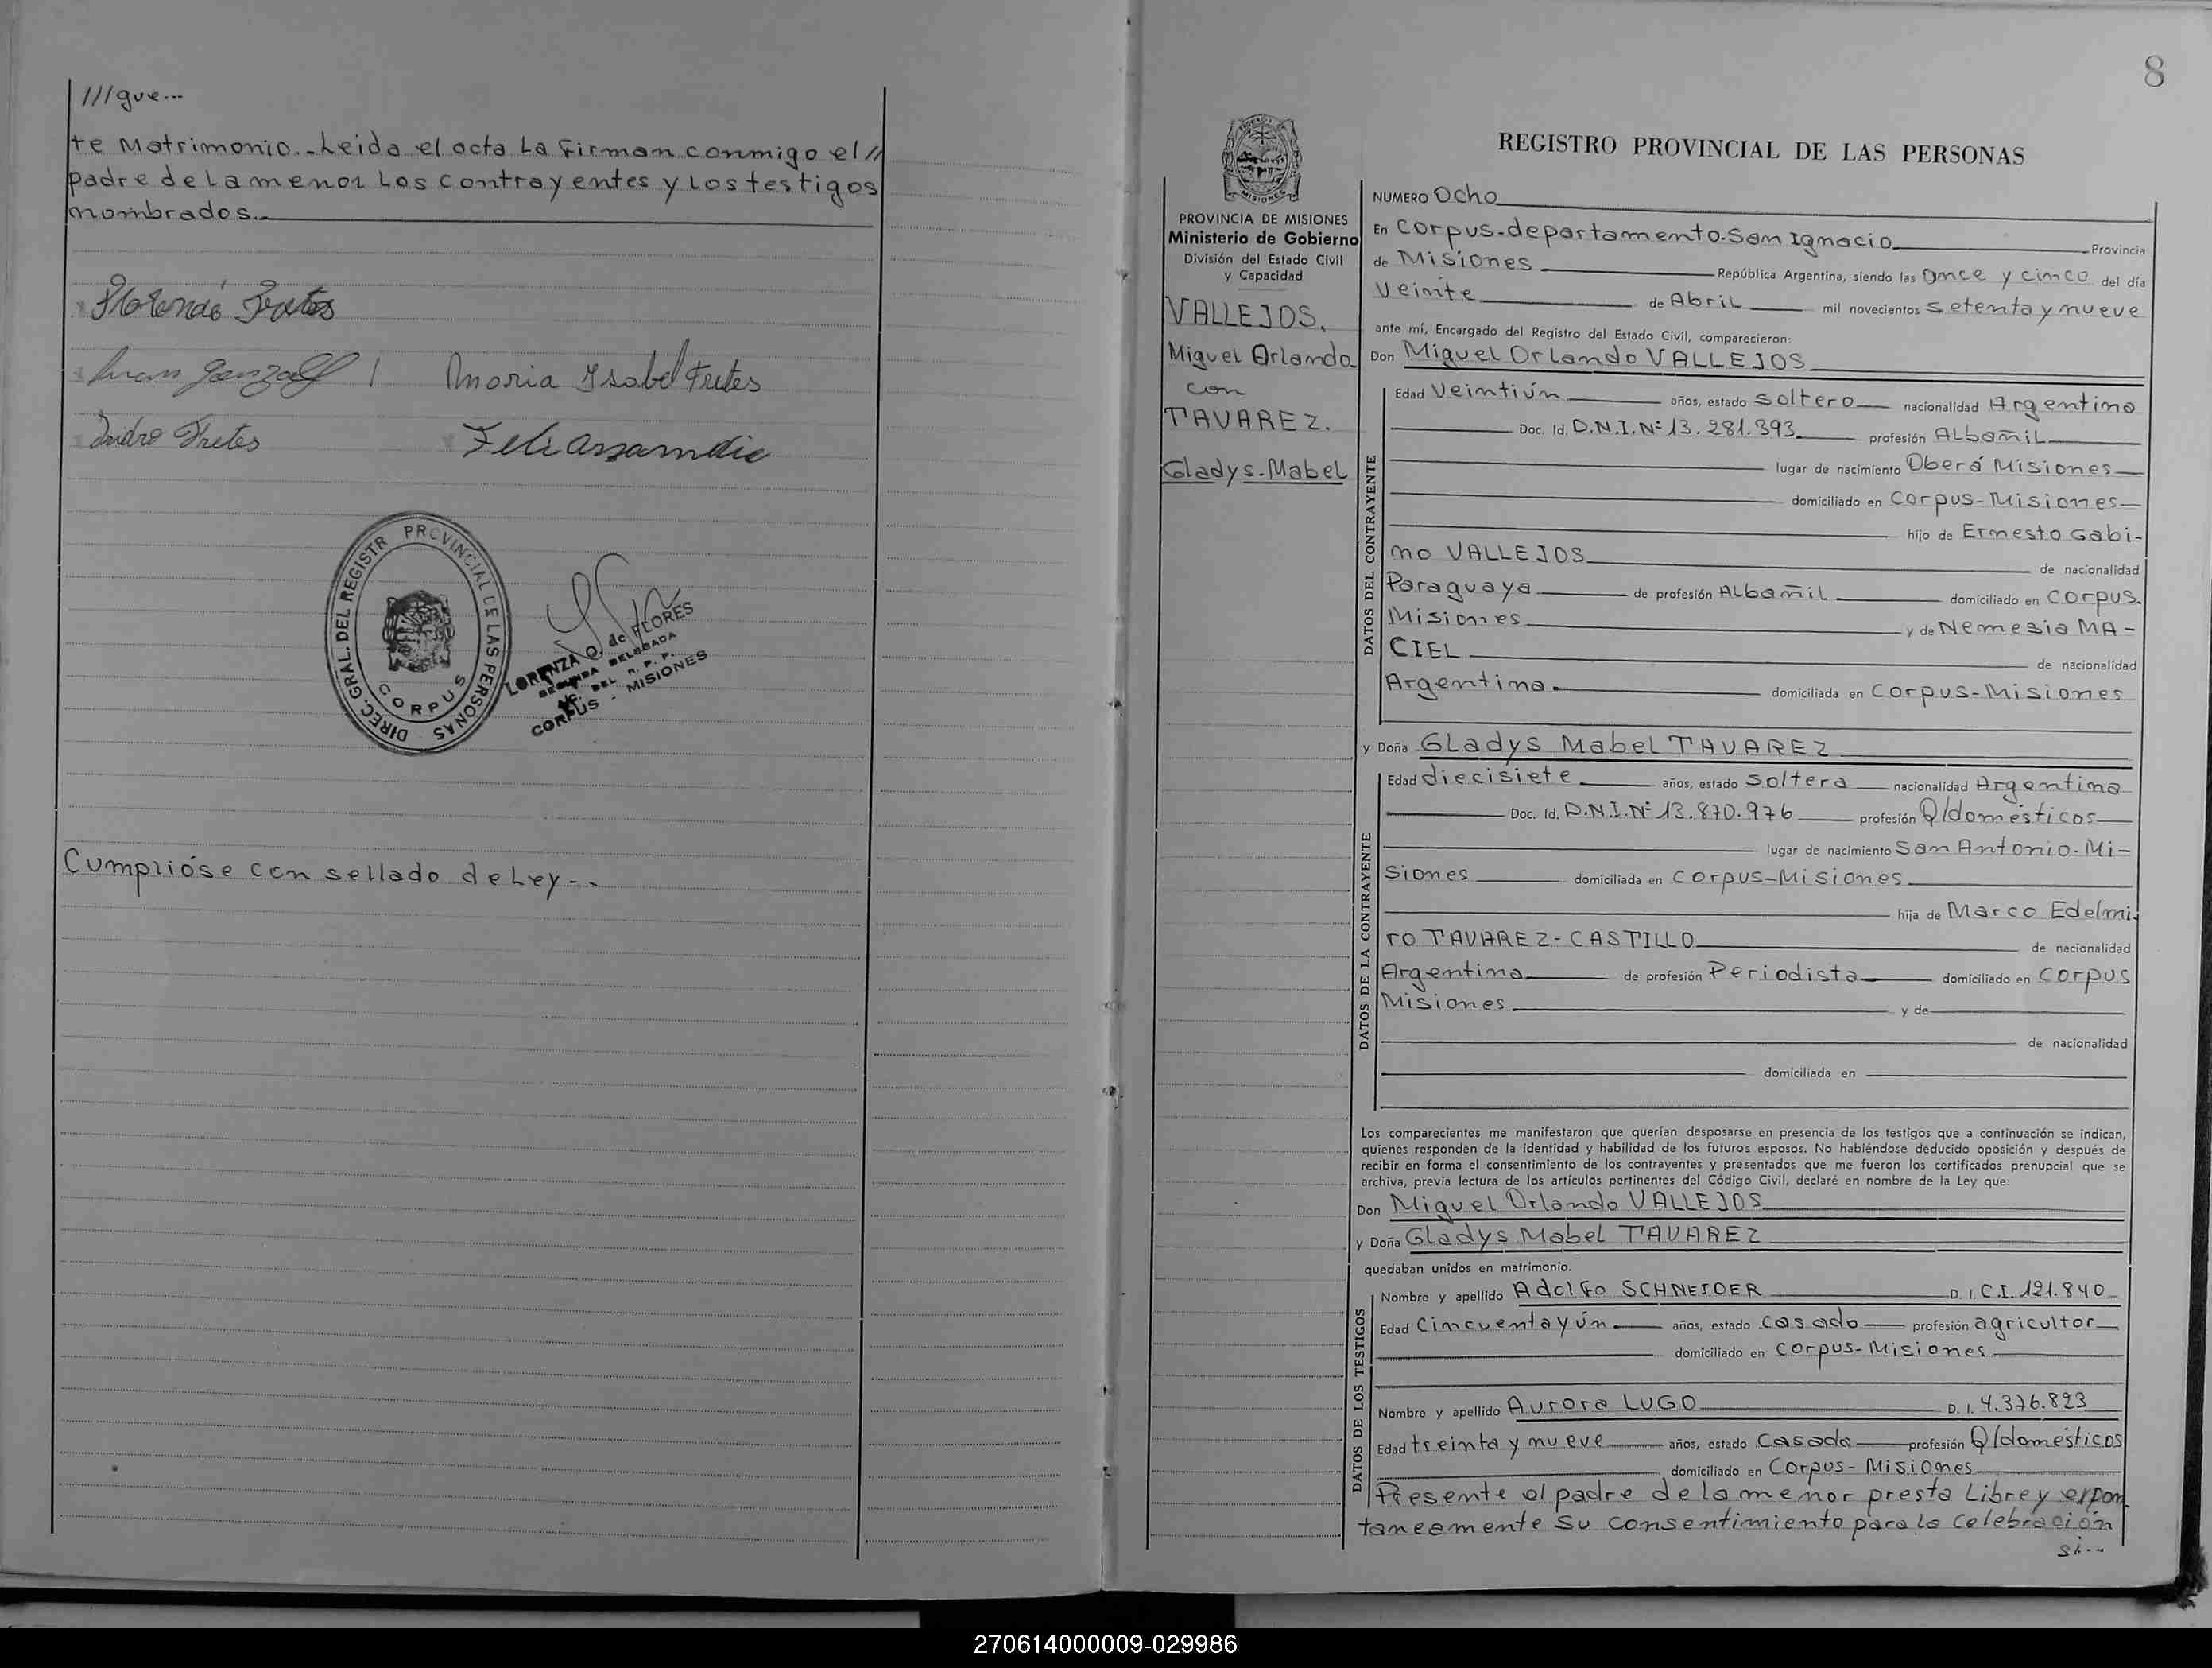 ///gue...
te Matrimonio.-Leida el acta La Firman conmigo el//
padre de La menor Los contrayentes y Los testigos
nombrados.-
Maria Ysabel Fretes
Isidro Fretes
DIREC. GRAL. DEL REGISTR PROVINCIAL DE LAS PERSONAS
CORPUS
LORENZA Q. de FLORES
SEGUNDA DELEGADA
DEL R. P. P.
CORPUS - MISIONES
Cumplióse con sellado de Ley-.
8
PROVINCIA DE MISIONES
Ministerio de Gobierno
División del Estado Civil
y Capacidad
VALLEJOS.
Miguel Orlando
con
TAVAREZ.
Gladys-Mabel
REGISTRO PROVINCIAL DE LAS PERSONAS
NUMERO Ocho
En Corpus-departamento-San Ignacio Provincia
de Misiones República Argentina, siendo las once y cinco del día
Veinte de Abril mil novecientos setenta y nueve
ante mí, Encargado del Registro del Estado Civil, comparecieron:
Don Miguel Orlando VALLEJOS
DATOS DEL CONTRAYENTE
Edad Veintiún años, estado soltero nacionalidad Argentina
Doc. Id. D.N.I.Nº 13.281.393 profesión Albañil
lugar de nacimiento Oberá Misiones
domiciliado en Corpus-Misiones
hijo de Ernesto Gabi-
no VALLEJOS de nacionalidad
Paraguaya de profesión Albañil domiciliado en Corpus.
Misiones y de Nemesia MA-
CIEL de nacionalidad
Argentina. domiciliada en Corpus-Misiones
y Doña Gladys Mabel TAVAREZ
DATOS DE LA CONTRAYENTE
Edad diecisiete años, estado soltera nacionalidad Argentina
Doc. Id. D.N.I.Nº 13.870.976 profesión Q/domésticos
lugar de nacimiento San Antonio-Mi-
siones domiciliada en Corpus-Misiones
hija de Marco Edelmi-
ro TAVAREZ-CASTILLO de nacionalidad
Argentina de profesión Periodista domiciliado en Corpus
Misiones y de
de nacionalidad
domiciliada en
Los comparecientes me manifestaron que querían desposarse en presencia de los testigos que a continuación se indican,
quienes responden de la identidad y habilidad de los futuros esposos. No habiéndose deducido oposición y después de
recibir en forma el consentimiento de los contrayentes y presentados que me fueron los certificados prenupcial que se
archiva, previa lectura de los artículos pertinentes del Código Civil, declaré en nombre de la Ley que:
Don Miguel Orlando VALLEJOS
y Doña Gladys Mabel TAVAREZ
quedaban unidos en matrimonio.
DATOS DE LOS TESTIGOS
Nombre y apellido Adolfo SCHNEIDER D. I. C.I. 121.840
Edad Cincuenta y ún años, estado casado profesión agricultor
domiciliado en Corpus-Misiones
Nombre y apellido Aurora LUGO D. I. 4.376.823
Edad treinta y nueve años, estado Casada profesión Q/domésticos
domiciliado en Corpus-Misiones
Presente el padre de la menor presta Libre y expon
taneamente su consentimiento para la celebración
si..
270614000009-029986